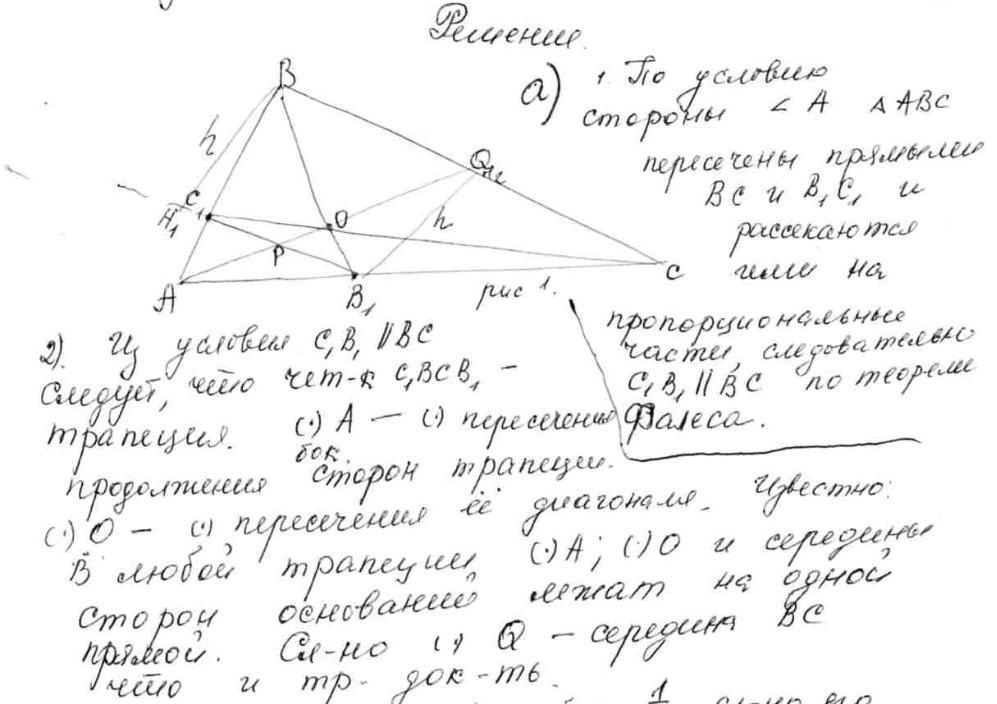 Решение.
а) 1. По условию
стороны ∠ A △ ABC
пересечены прямыми
BC и B₁C₁ и
рассекаются
ими на
пропорциональные
части, следовательно
C₁B₁ || BC по теореме
Фалеса.
B
h
C₁
H₁
O
Q
H₂
h
P
A
B₁
C
рис 1.
2). Из условия C₁B₁ || BC
следует, что чет-к C₁BCB₁ –
трапеция. (·) A – (·) пересечения
продолжения бок. сторон трапеции.
(·) O – (·) пересечения её диагоналя. Известно:
В любой трапеции (·) A; (·) O и середины
сторон оснований лежат на одной
прямой. Сл-но (·) Q – середина BC
что и тр. док-ть.